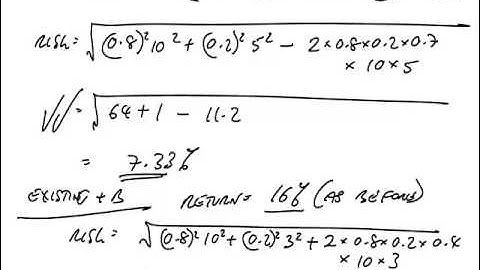 RISK = √(0.8)² 10² + (0.2)² 5² − 2 × 0.8 × 0.2 × 0.7
× 10 × 5
= √64 + 1 − 11.2
= 7.33%
EXISTING + B RETURN = 16% (AS BEFORE)
RISK = √(0.8)² 10² + (0.2)² 3² + 2 × 0.8 × 0.2 × 0.4
× 10 × 3